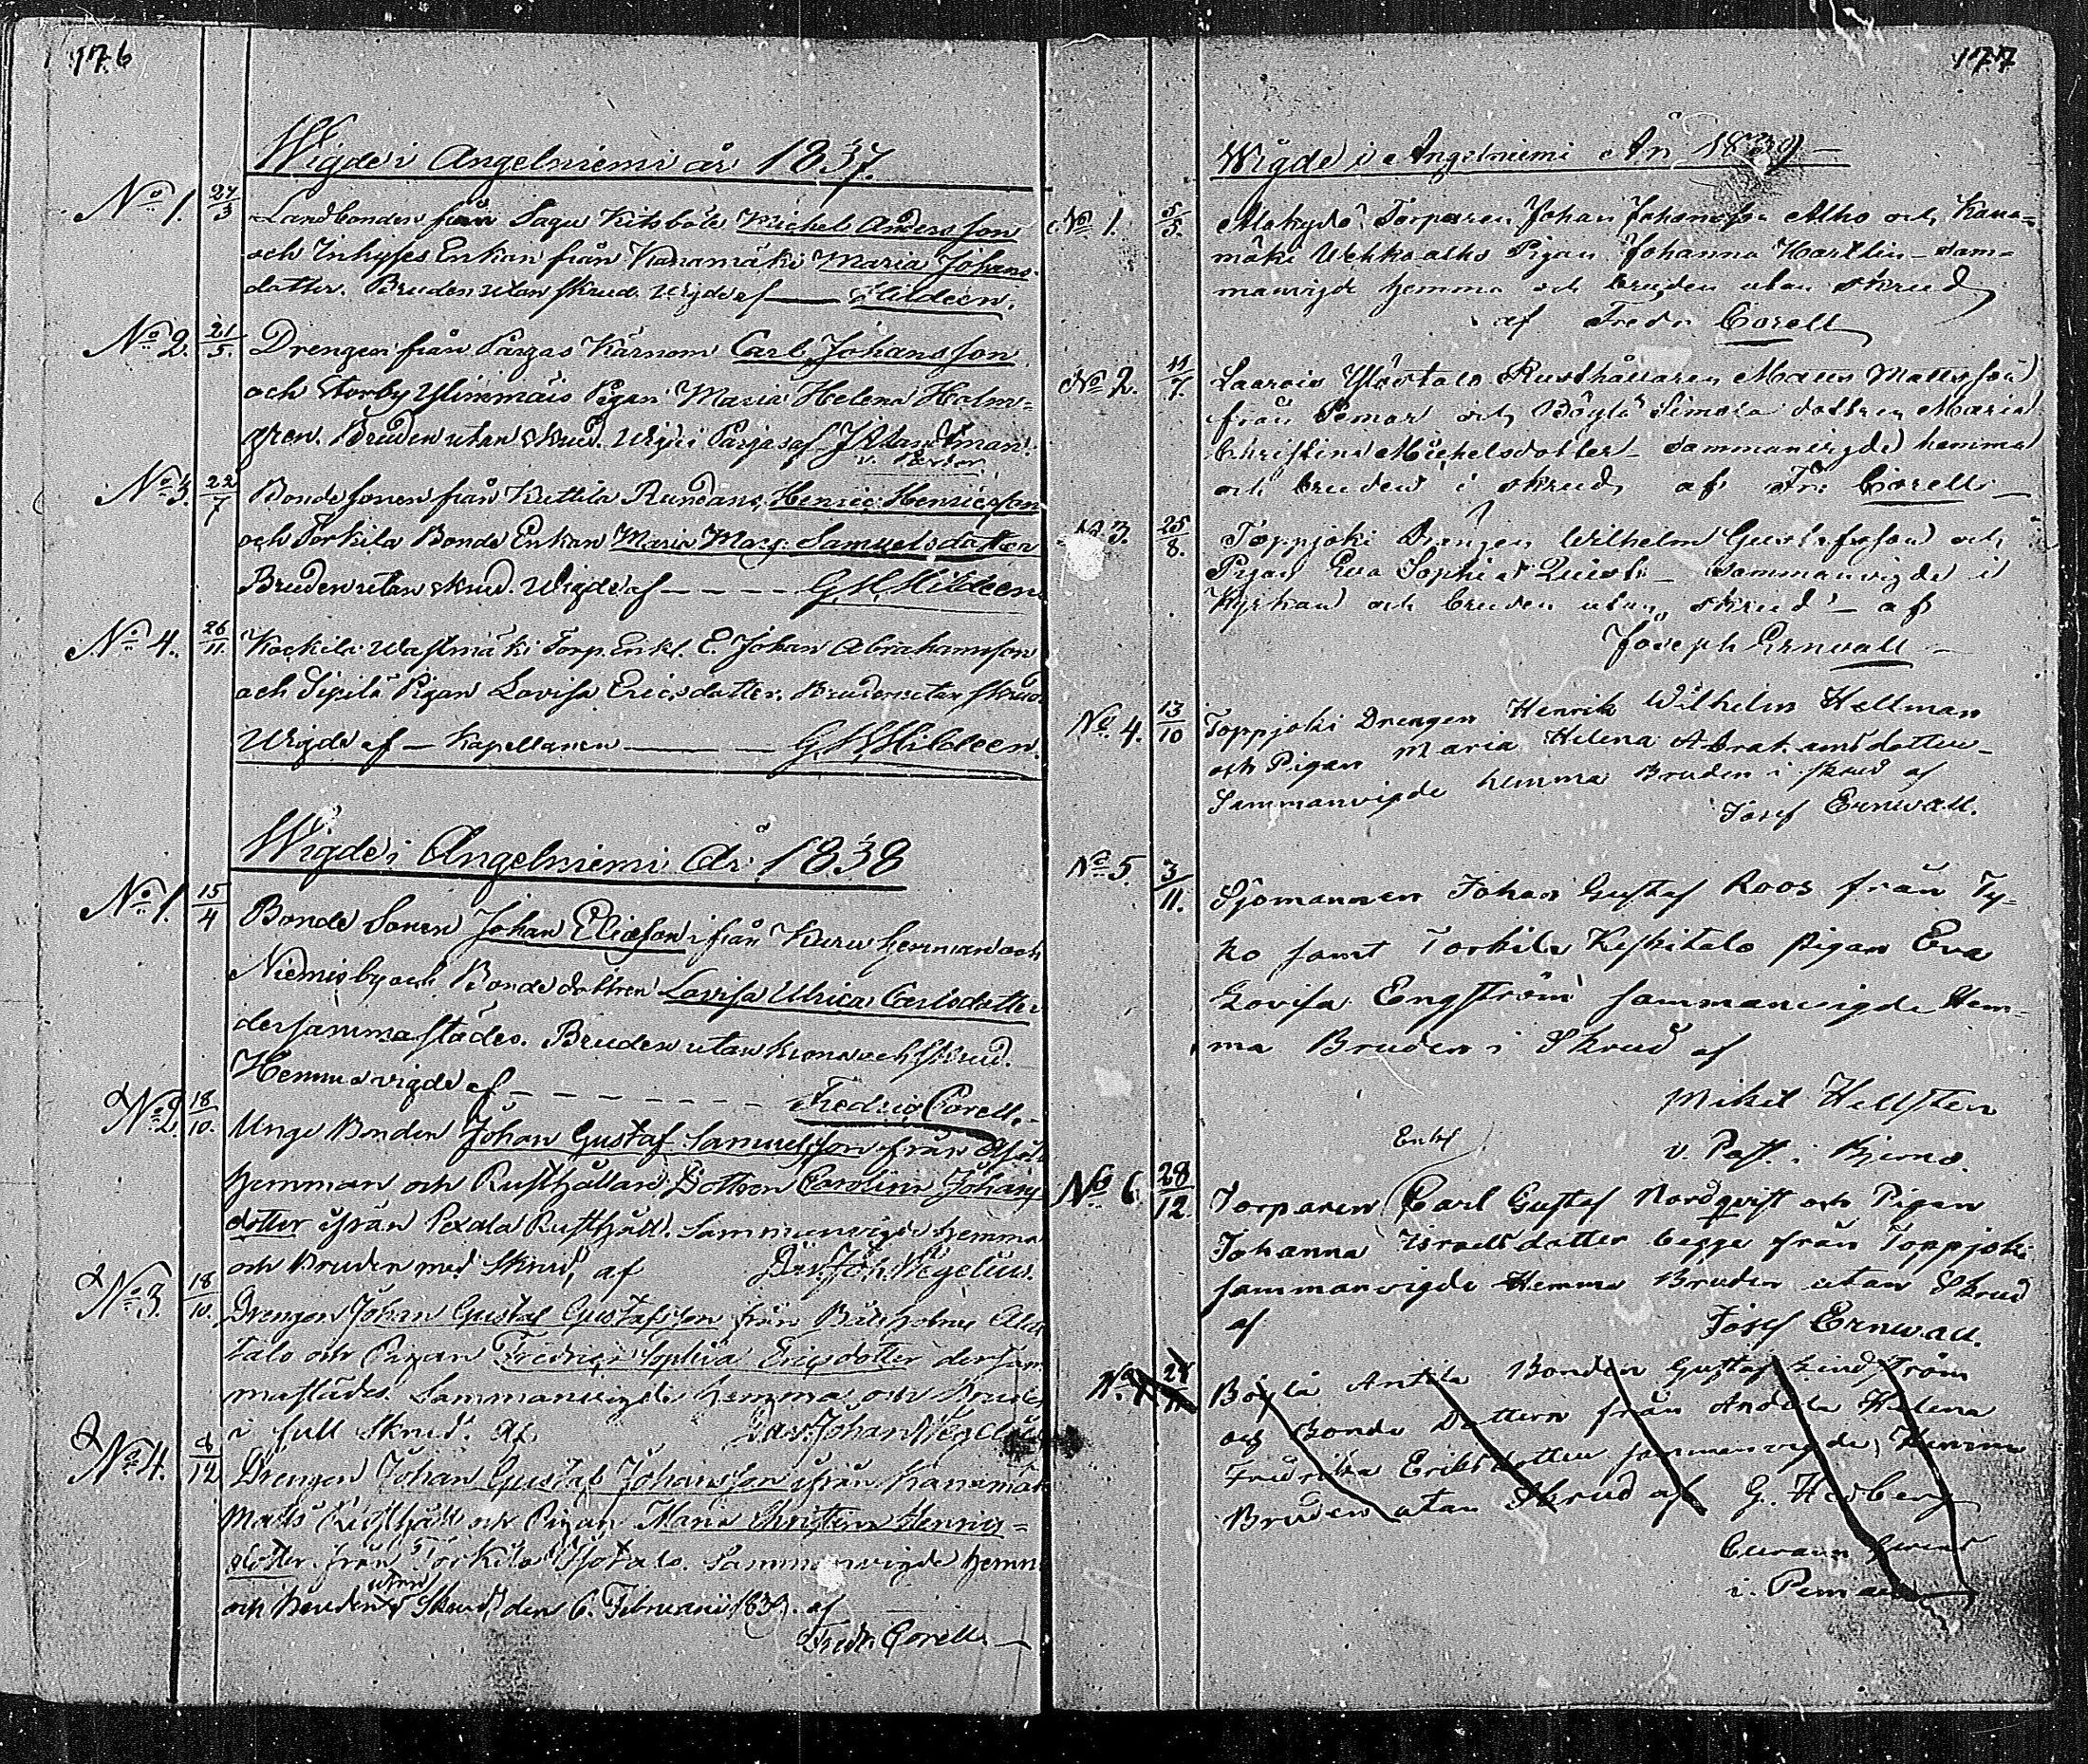 176
Wigde i Angelniemi år 1837.
No 1. 27/3 Landbonden från Sagu Kitsböle Michel Andersson
och Inhyses Enkan från Kanamäki Maria Johans-
dotter. Bruden utan skrud. Wigde af — Hildeen.
No 2. 21/5. Drengen från Pargas Kärnom Carl Johansson
och Storby Ylimmäis Pigan Maria Helena Holm-
gren. Bruden utan skrud. Wigde i Pargas af
v. Pastor.
No 3. 22/7 Bondesonen från Kuttila Rundans Henric Henricsson
och Torkila Bonde Enkan Maria Marg. Samuelsdotter
Bruden utan skrud. Wigde af - - - - G. H. Hildeen
No 4. 26/11 Kockila Wastmäki Torp. Enkl. E. Johan Abrahamsson
och Sipilä Pigan Lovisa Ericsdotter. Bruden utan skrud
Wigde af — Kapellanen — G. H. Hildeen.
Wigde i Angelniemi År 1838
No 1. 15/4 Bonde Sonen Johan Eliasson ifrån Kuru hemman och
Niemis by och Bonde dottren Lovisa Ulrica Carlsdotter
dersammastädes. Bruden utan krona och skrud.
Hemma vigde af - - - - - - - Fredric Corell.
No 2. 18/10. Unge Bonden Johan Gustaf Samuelsson från
hemman och Rusthållare Dottren Carolina Johans
dotter ifrån Pexala Rusthåll. Sammanvigde hemma
och Bruden med Skrud, af Dav. Joh. Wegelius.
No 3. 18/10. Drengen Johan Gustaf Gustafsson från Båtholms Ala
talo och Pigan Fredrica Sophia Ericsdotter dersam
mastädes. Sammanvigde hemma och Bruden
i full Skrud. Af Dav. Johan Wegelius
No 4. 6/12 Drengen Johan Gustaf Johansson ifrån Kanamäki
Matts Rusthåll och Pigan Maria Christina Henrics-
dotter från Torkila Isotalo. Sammanvigde hemma
utan
och Bruden Skrud, den 6. Februarii 1839. af
Fredr. Corell. —
177
Wigde i Angelniemi År 1839 —
No 1. 5/5. Alskydö Torparen Johan Johansson Alho och Kana-
mäki Uehkaalho Pigan Johanna Karllin — Sam-
manvigde hemma och bruden utan skrud
af Fredr. Corell
No 2. 11/7. Laarois Ylöstalo Rusthållaren Matts Mattsson
från Pemar och Böylä Simola dottren Maria
Christina Michelsdotter — Sammanvigde hemma
och bruden i skrud af Fr. Corell —
No 3. 25/8. Toppjoki Drengen Wilhelm Gustafsson och
Pigan Eva Sophia Quist — Sammanvigde i
Kyrkan och bruden utan skrud — af
Joseph Ernvall —
No 4. 13/10 Toppjoki Drengen Henrik Wilhelm Hellman
och Pigan Maria Helena Abrahamsdotter —
Sammanvigde hemma Bruden i skrud af
Josef Ernwall.
No 5. 3/11. Sjömannen Johan Gustaf Roos från Ty-
ko samt Torkila Keskitalo pigan Eva
Lovisa Engström sammanvigde Hem-
ma Bruden i Skrud af
Mikel Hellsten
v. Past. i Bjerno.
Enkl
No 6. 28/12. Torparen Carl Gustaf Nordqvist och Pigan
Johanna Israelsdotter begge från Toppjoki
sammanvigde Hemma Bruden utan Skrud
af Josef Ernwall.
Böylä Antila Bonden Gustaf Lindström
och Bonde Dottern från Andela Helena
Fredrika Eriksdotter sammanvigde, Hemma
Bruden utan Skrud af G. Hedberg
i Pemar